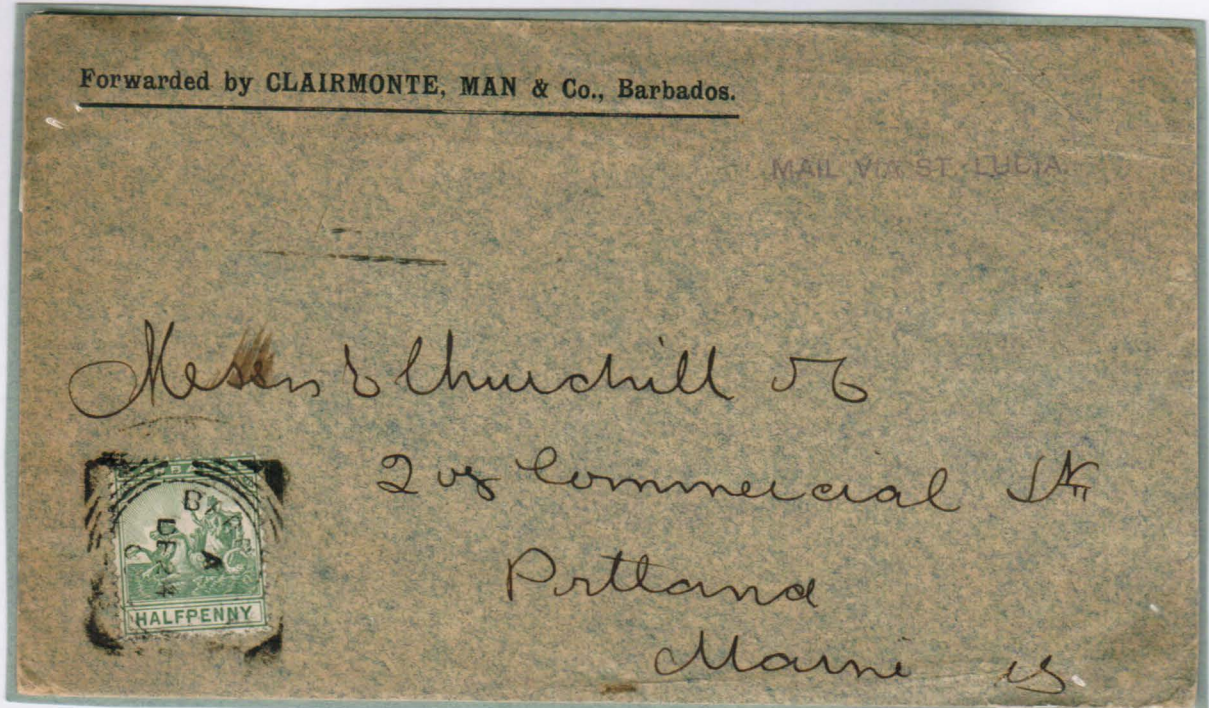 Forwarded by CLAIRMONTE, MAN & Co., Barbados.
MAIL VIA ST. LUCIA.
Messrs E Churchill & Co
Commercial St
Portland
Maine US
A
DE 14
HALFPENNY